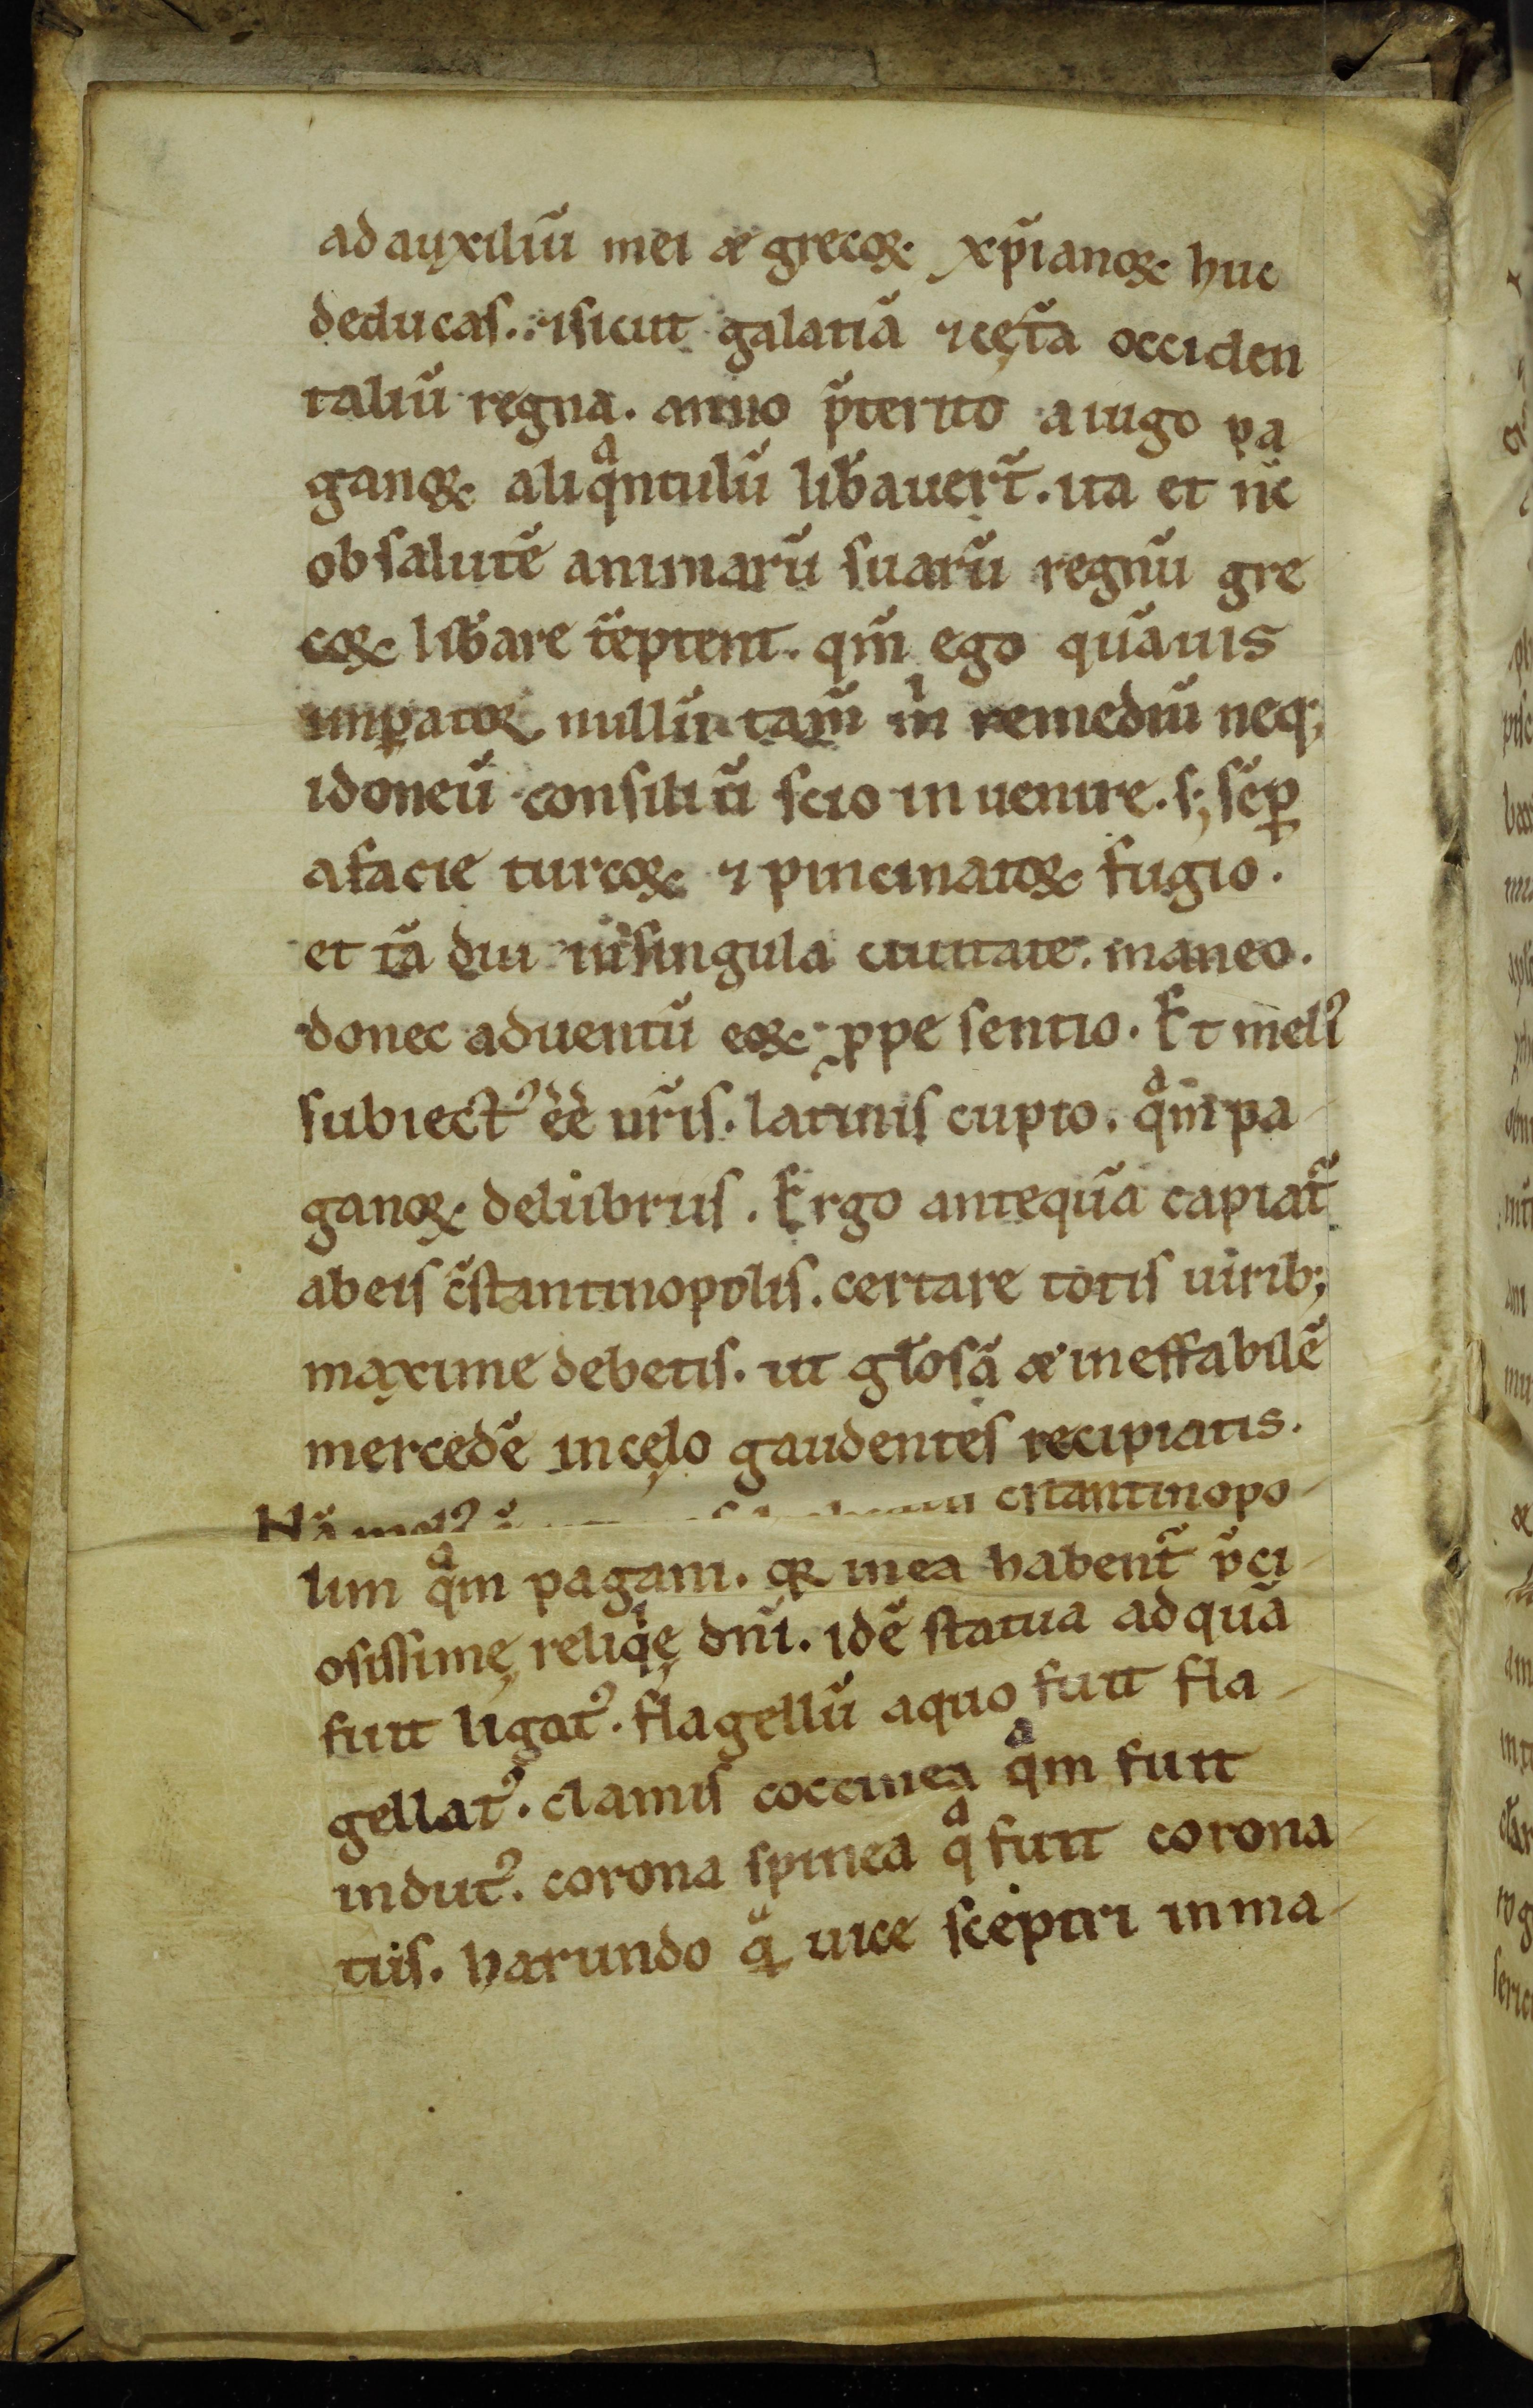 ad auxiliū mei & grecoꝝ xp̄ianoꝝ huc
deducas. ⁊ sicut galatiā ⁊ cęt̄a occiden
taliū regna. anno p̄terito a iugo pa
ganoꝝ aliqͣntulū lib̄auer̄t. ita et n̄c
ob salutē animarū suarū regnū gre
coꝝ lib̄are tēptent. qm̄ ego quāuis
imꝑator nullū tam̄ m̍ remediū neq;
idoneū consiliū scio inuenire. s; sēꝑ
a facie turcoꝝ ⁊ pincinatoꝝ fugio.
et tā diu in singula ciuitate maneo.
donec aduentū eoꝝ ꝓpe sentio. Et meli᷒
subiect᷒ eē ur̄is latinis cupio. qͣm pa
ganoꝝ delubriis. Ergo antequā capiat᷑
ab eis c̄stantinopolis. certare totis uirib;
maxime debetis. ut gl̄osā & ineffabilē
mercedē in cęlo gaudentes recipiatis.
Nā meli᷒ c̄stantinopo
lim qͣm pagani. qꝛ in ea habent᷑ p̄ci
osissimę reliqͥę dn̄i. idē statua ad quā
fuit ligat᷒. flagellū a quo fuit fla
gellat᷒. clamis coccinea qͣm fuit
indut᷒. corona spinea qͣ fuit corona
tus. harundo qͣ uice sceptri in ma